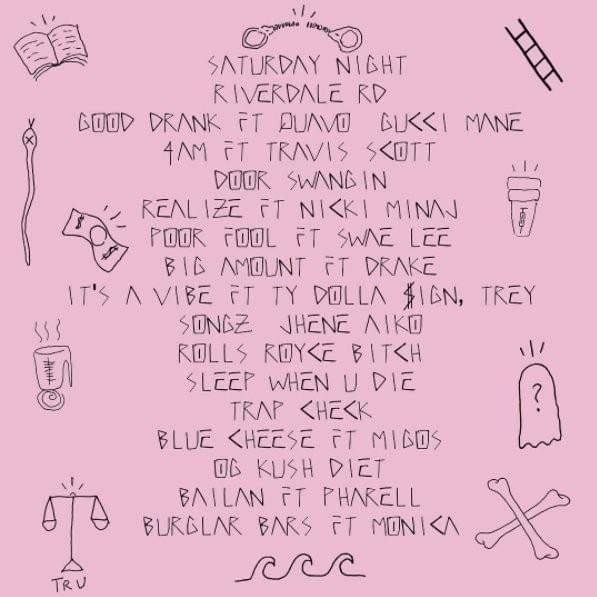 SATURDAY NIGHT
RIVERDALE RD
GOOD DRANK FT QUAVO GUCCI MANE
4AM FT TRAVIS SCOTT
DOOR SWANGIN
REALIZE FT NICKI MINAJ
POOR FOOL FT SWAE LEE
BIG AMOUNT FT DRAKE
IT'S A VIBE FT TY DOLLA $IGN, TREY
SONGZ JHENE AIKO
ROLLS ROYCE BITCH
SLEEP WHEN U DIE
TRAP CHECK
BLUE CHEESE FT MIGOS
OG KUSH DIET
BAILAN FT PHARELL
BURGLAR BARS FT MONICA
TRU